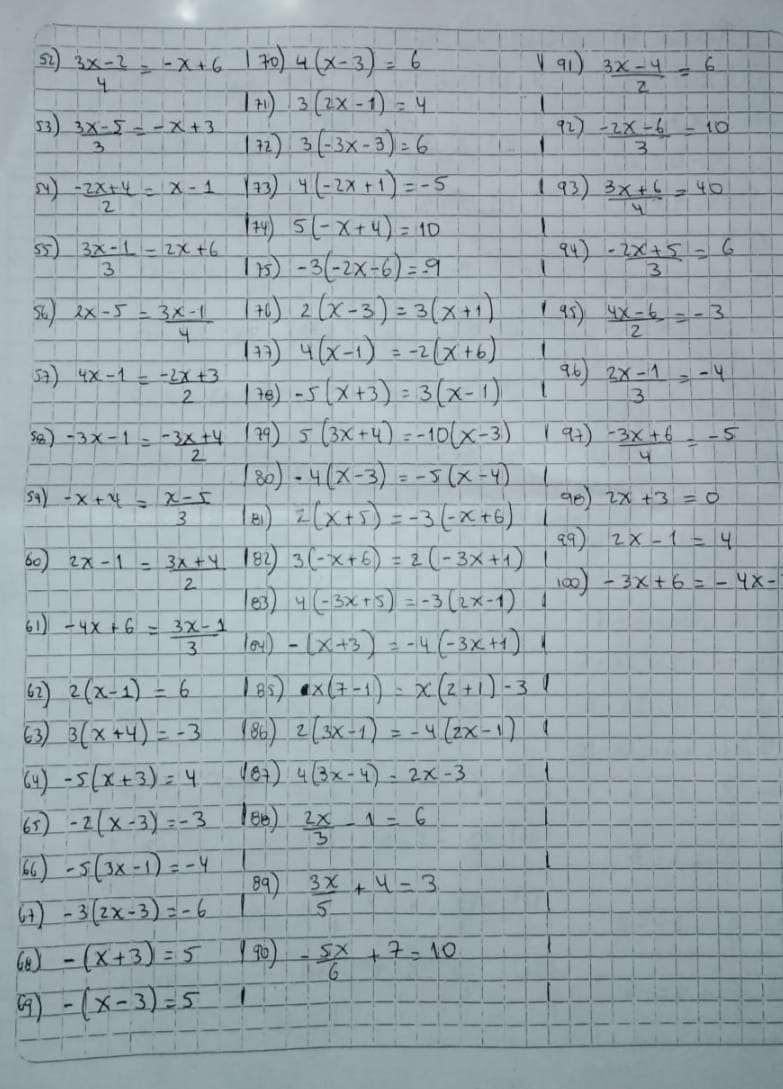 52) (3x-2)/4 = -x+6
53) (3x-5)/3 = -x+3
54) (-2x+4)/2 = x-1
55) (3x-1)/3 = 2x+6
56) 2x-5 = (3x-1)/4
57) 4x-1 = (-2x+3)/2
58) -3x-1 = (-3x+4)/2
59) -x+4 = (x-5)/3
60) 2x-1 = (3x+4)/2
61) -4x+6 = (3x-1)/3
62) 2(x-1) = 6
63) 3(x+4) = -3
64) -5(x+3) = 4
65) -2(x-3) = -3
66) -5(3x-1) = -4
67) -3(2x-3) = -6
68) -(x+3) = 5
69) -(x-3) = 5
70) 4(x-3) = 6
71) 3(2x-1) = 4
72) 3(-3x-3) = 6
73) 4(-2x+1) = -5
74) 5(-x+4) = 10
75) -3(-2x-6) = -9
76) 2(x-3) = 3(x+1)
77) 4(x-1) = -2(x+6)
78) -5(x+3) = 3(x-1)
79) 5(3x+4) = -10(x-3)
80) -4(x-3) = -5(x-4)
81) 2(x+5) = -3(-x+6)
82) 3(-x+6) = 2(-3x+1)
83) 4(-3x+5) = -3(2x-1)
84) -(x+3) = -4(-3x+1)
85) x(7-1) = x(2+1)-3
86) 2(3x-1) = -4(2x-1)
87) 4(3x-4) = 2x-3
88) 2x/3 - 1 = 6
89) 3x/5 + 4 = 3
90) -5x/6 + 7 = 10
91) (3x-4)/2 = 6
92) (-2x-6)/3 = 10
93) (3x+6)/4 = 40
94) (-2x+5)/3 = 6
95) (4x-6)/2 = -3
96) (2x-1)/3 = -4
97) (-3x+6)/4 = -5
98) 2x+3 = 0
99) 2x-1 = 4
100) -3x+6 = -4x-